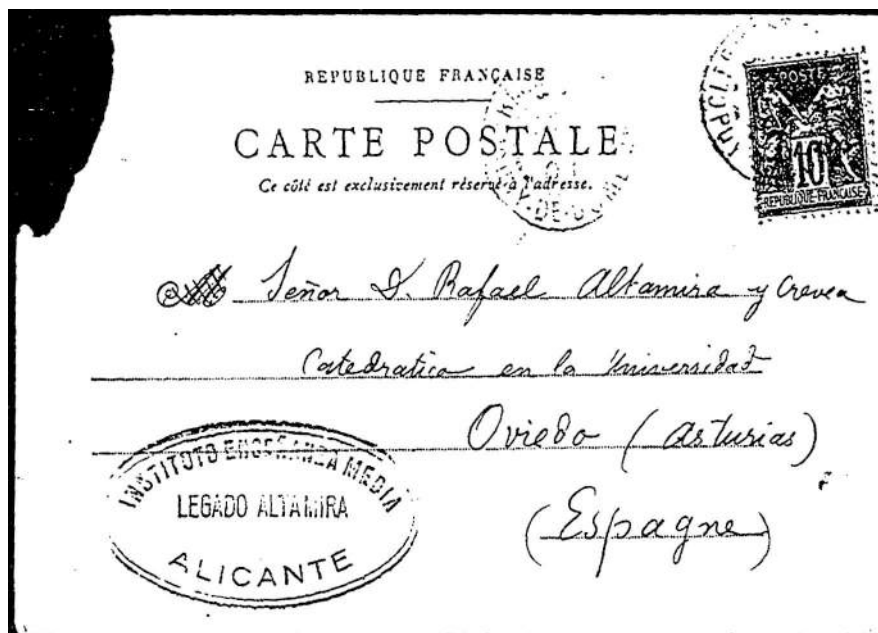 REPUBLIQUE FRANÇAISE
CARTE POSTALE
Ce côté est exclusivement réservé à l'adresse.
POSTE
10
REPUBLIQUE FRANÇAISE
PUY-DE-DOME
Señor D. Rafael Altamira y Crevea
Catedratico en la Universidad
Oviedo (Asturias)
(Espagne)
INSTITUTO ENSEÑANZA MEDIA
LEGADO ALTAMIRA
ALICANTE